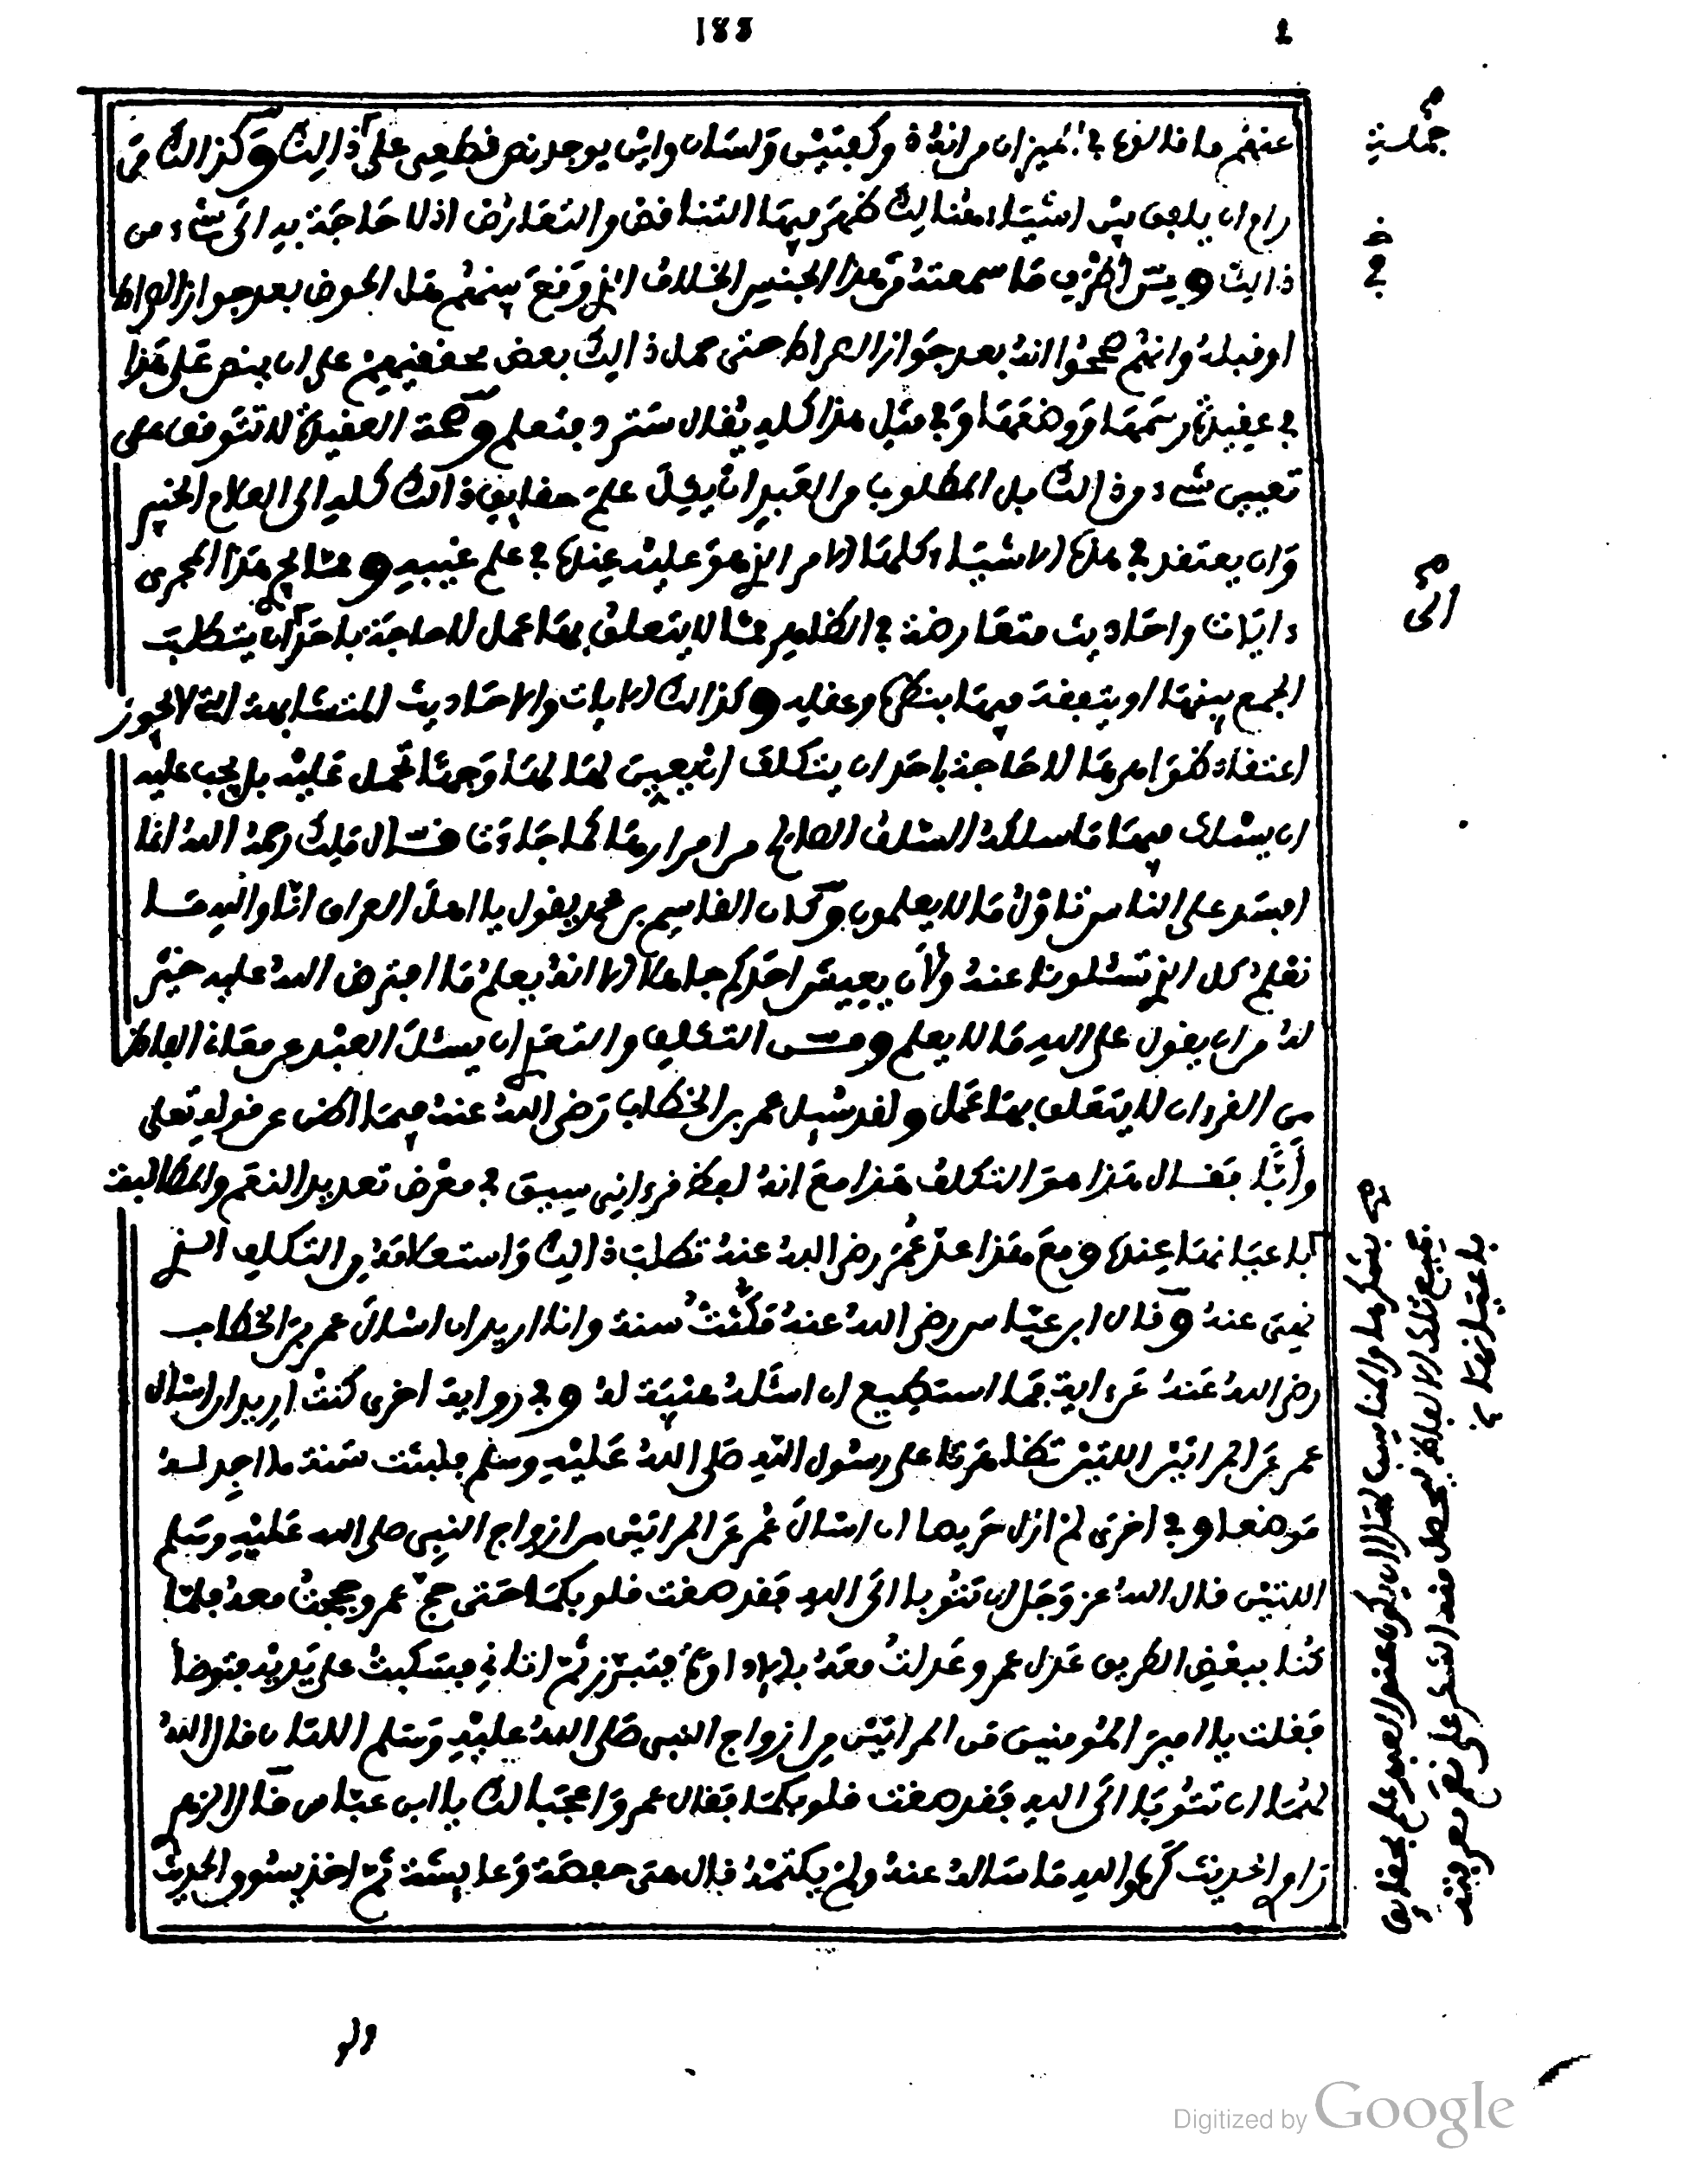 188
عنهم ما قالوه في الميزان من انه ذو كفتين ولسان واين يوجد نص قطعي على ذالك وكذالك من
رام ان يلفق بين اشياء هنالك ظهر فيها التناقض والتعارض اذ لا حاجة به الى شيء من
ذالك ومن اظرف ما سمعته من هذا الجنس الخلاف الذي وقع بينهم هل الحوض بعد جواز الصراط
او قبله وانهم صححوا انه بعد جواز الصراط حتى حمل ذالك بعض محققيهم على ان ينص على هذا
في عقيدة رسمها ووضعها وفي مثل هذا كله يقال سترد فتعلم وصحة العقيدة لا تتوقف على
تعيين شيء من ذالك بل المطلوب من العبد ان يكل علم حقايق ذالك كله الى العلام الخبير
وان يعتقد في هذه الاشياء كلها الامر الذي هو عليه عنده في علم غيبه ومما يجري هذا المجرى
ءايات واحاديث متعارضة في الظاهر مما لا يتعلق بها عمل لا حاجة باحد ان يتطلب
الجمع بينهما او يتفقه فيها بنظره وعقله وكذالك الايات والاحاديث المتشابهة التي لا يجوز
اعتقاد ظواهرها لا حاجة باحد ان يتكلف ان يعين لها وجها تحمل عليه بل يجب عليه
ان يسلك فيها ما سلكه السلف الصالح من امرارها كما جاءت قال ملك رحمه الله انما
افسد على الناس تاويل ما لا يعلمون وكان القاسم بن محمد يقول يا اهل العراق انا والله ما
نعلم كل الذي تسئلوننا عنه ولأن يعيش احدكم جاهلا الا انه يعلم ما افترض الله عليه خير
له من ان يقول على الله ما لا يعلم ومن التكلف والتعمق ان يسئل العبد عن معاني الفاظ
من القرءان لا يتعلق بها عمل ولقد سئل عمر بن الخطاب رضي الله عنه فيما اظن عن قوله تعلى
وأبا فقال هذا هو التكلف هذا مع انه لفظ قرءاني سيق في معرض تعديد النعم والمطالبة
باعيانها عنده ومع هذا عد عمر رضي الله عنه تطلب ذالك واستعلامه من التكلف الذي
نهى عنه وقال ابن عباس رضي الله عنه مكثت سنة وانا اريد ان اسأل عمر بن الخطاب
رضي الله عنه عن ءاية فما استطيع ان اسئله هيبة له وفي رواية اخرى كنت اريد ان اسأل
عمر عن المراتين اللتين تظاهرتا على رسول الله صلى الله عليه وسلم فلبثت سنة ما اجد له
موضعا وفي اخرى لم ازل حريصا ان اسأل عمر عن المراتين من ازواج النبي صلى الله عليه وسلم
اللتين قال الله عز وجل ان تتوبا الى الله فقد صغت قلوبكما حتى حج عمر وحججت معه فلما
كنا ببعض الطريق عدل عمر وعدلت معه بالاداوة فتبرز ثم اتاني فسكبت على يديه فتوضأ
فقلت يا امير المؤمنين من المراتين من ازواج النبي صلى الله عليه وسلم اللتان قال الله
لهما ان تتوبا الى الله فقد صغت قلوبكما فقال عمر واعجبا لك يا ابن عباس قال الزهري
كره والله ما سأله عنه ولم يكتمه قال هي حفصة وعايشة ثم اخذ يسوق الحديث
الى